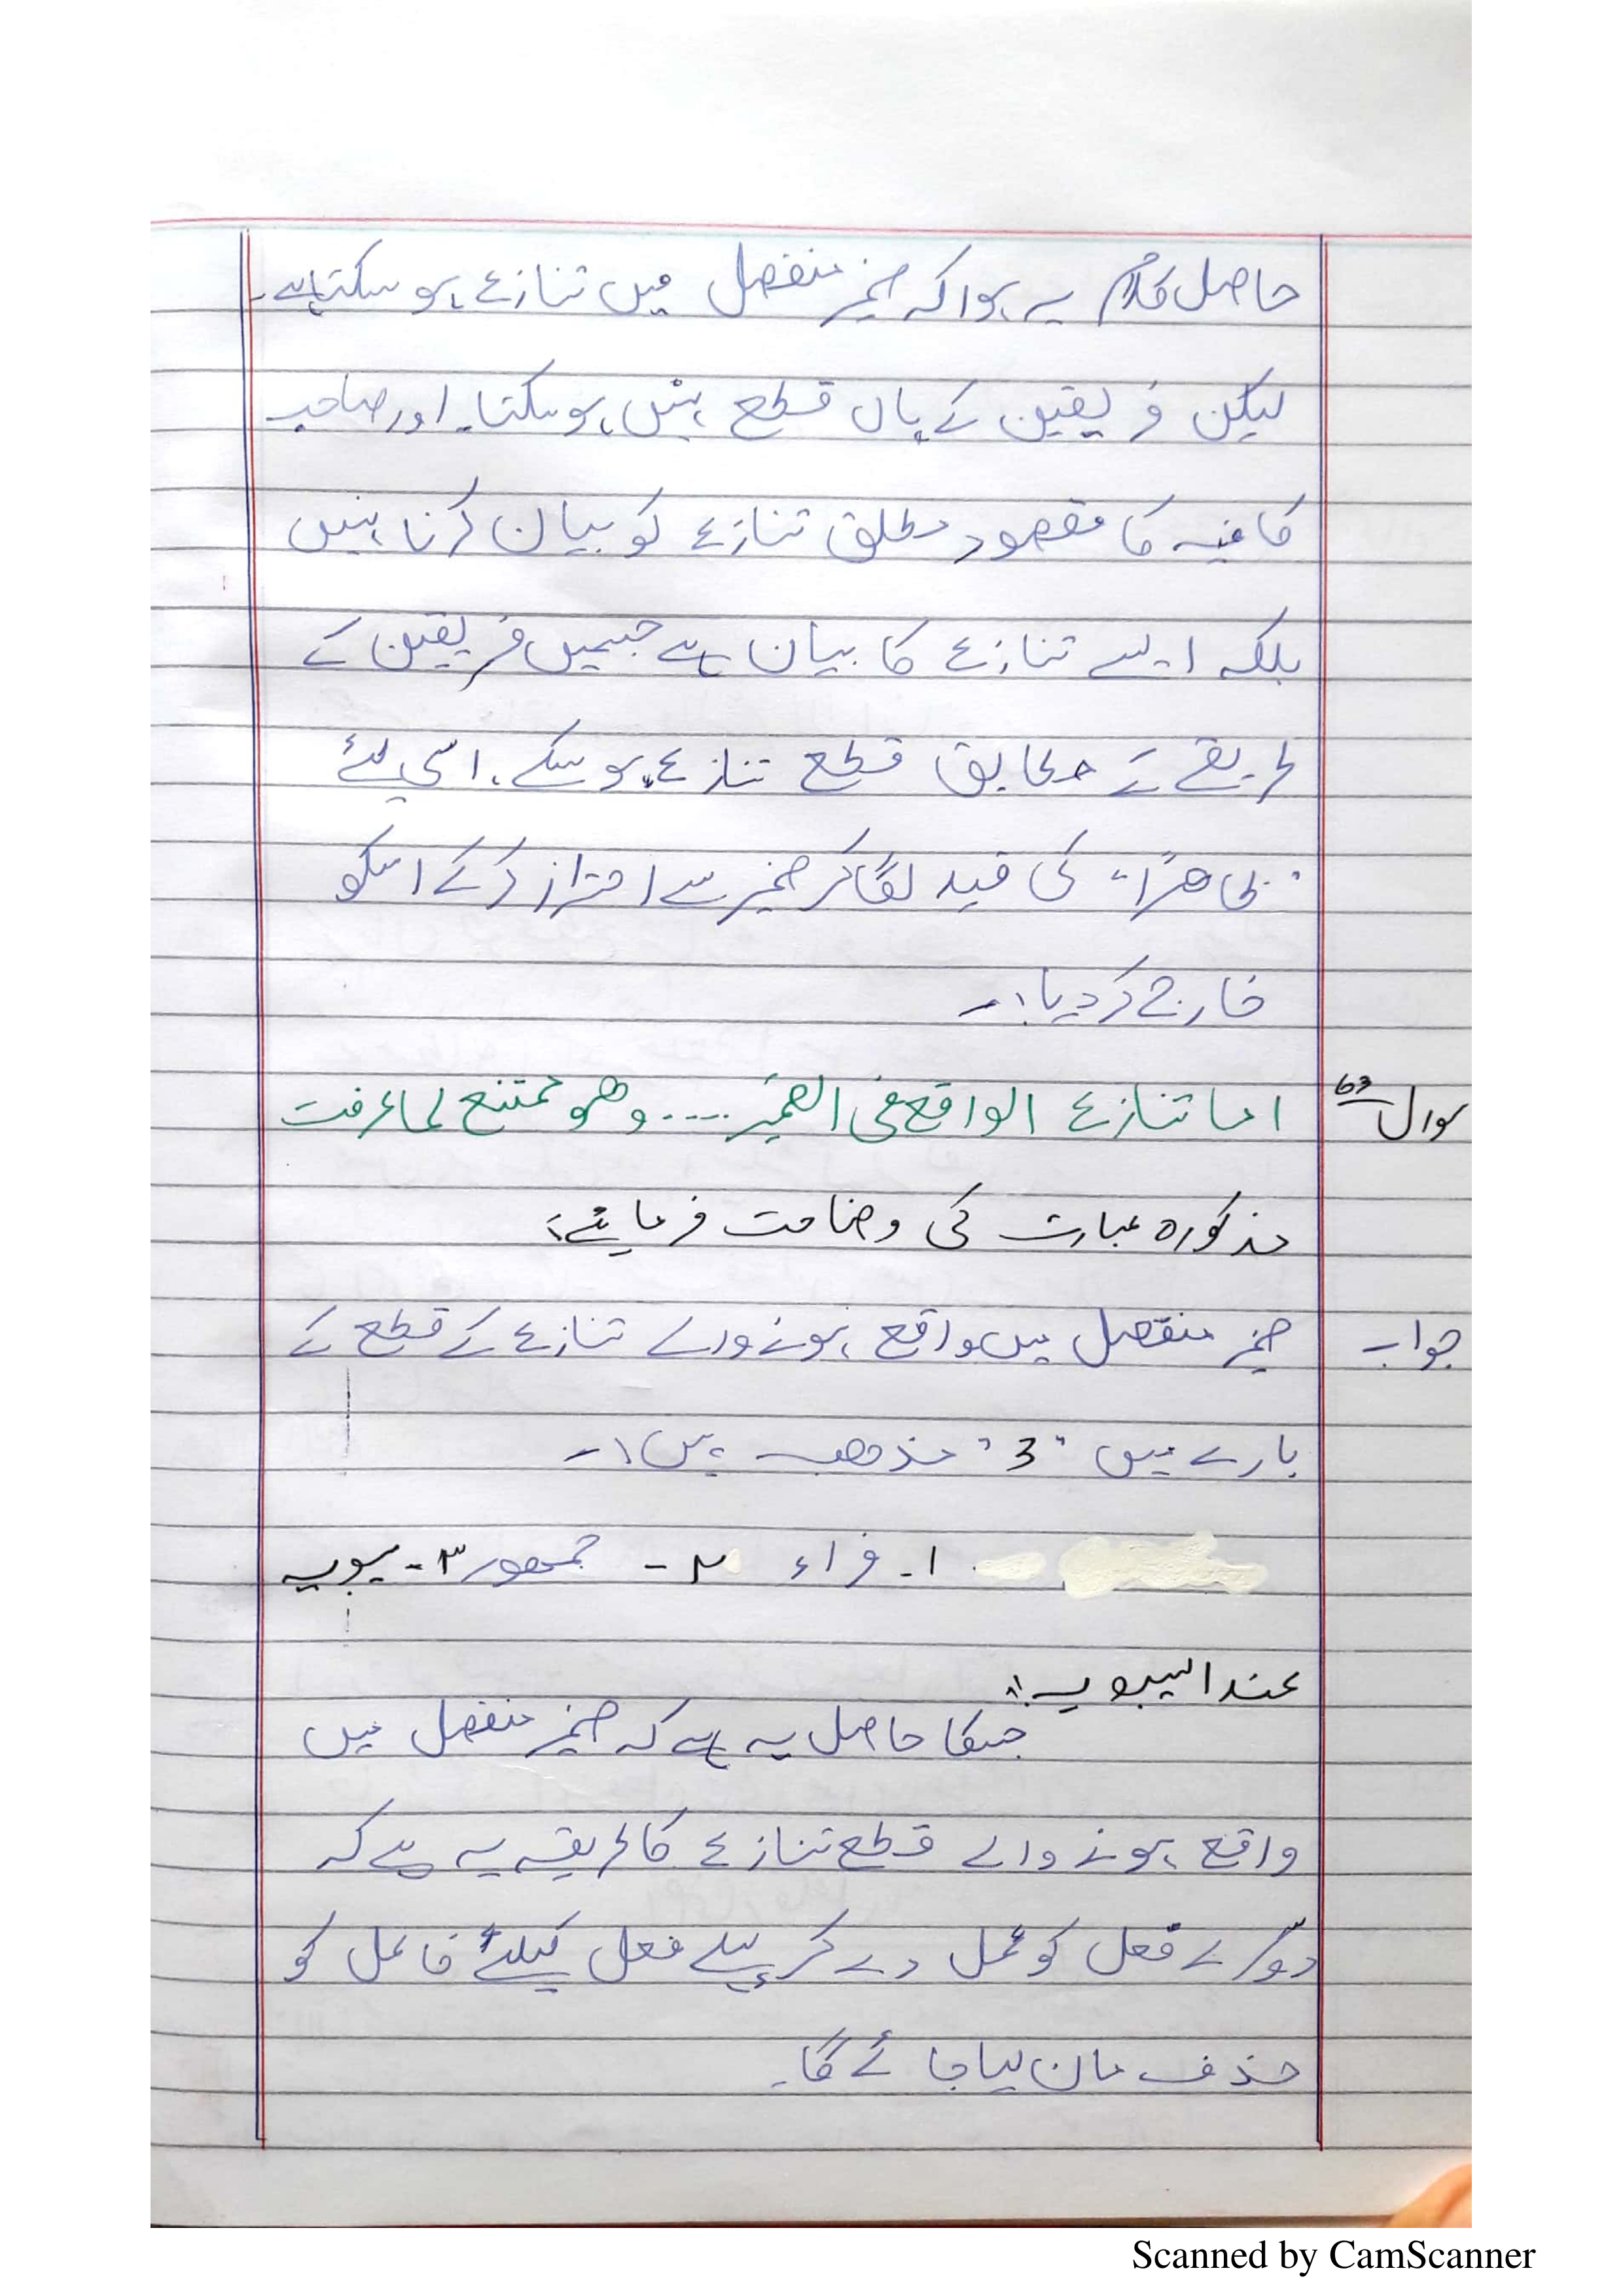 حاصل کلام یہ ہوا کہ ضمیر منفصل میں تنازع ہو سکتا ہے۔
لیکن فریقین کے ہاں قطع نہیں ہو سکتا۔ اور صاحب
کافیہ کا مقصود مطلق تنازع کو بیان کرنا نہیں
بلکہ ایسے تنازع کا بیان ہے جسمیں فریقین کے
طریقے کے مطابق قطع تنازع ہو سکے، اسی لئے
"ظاھرًا" کی قید لگا کر ضمیر سے احتراز کر کے اسکو
خارج کر دیا۔
سوال 63 اما تنازع الواقع فی الضمیر .... وھو ممتنع لما عرفت
مذکورہ عبارت کی وضاحت فرمائیے؟
جواب ضمیر منفصل میں واقع ہونے والے تنازع کے قطع کے
بارے میں "3" مذھب ہیں۔
۱۔ فراء ۲۔ جمھور ۳۔ سیبویہ
عند السیبویہ:
جسکا حاصل یہ ہے کہ ضمیر منفصل میں
واقع ہونے والے قطع تنازع کا طریقہ یہ ہے کہ
دوسرے فعل کو عمل دے کر پہلے فعل کیلئے فاعل کو
حذف مان لیا جائے گا۔
Scanned by CamScanner